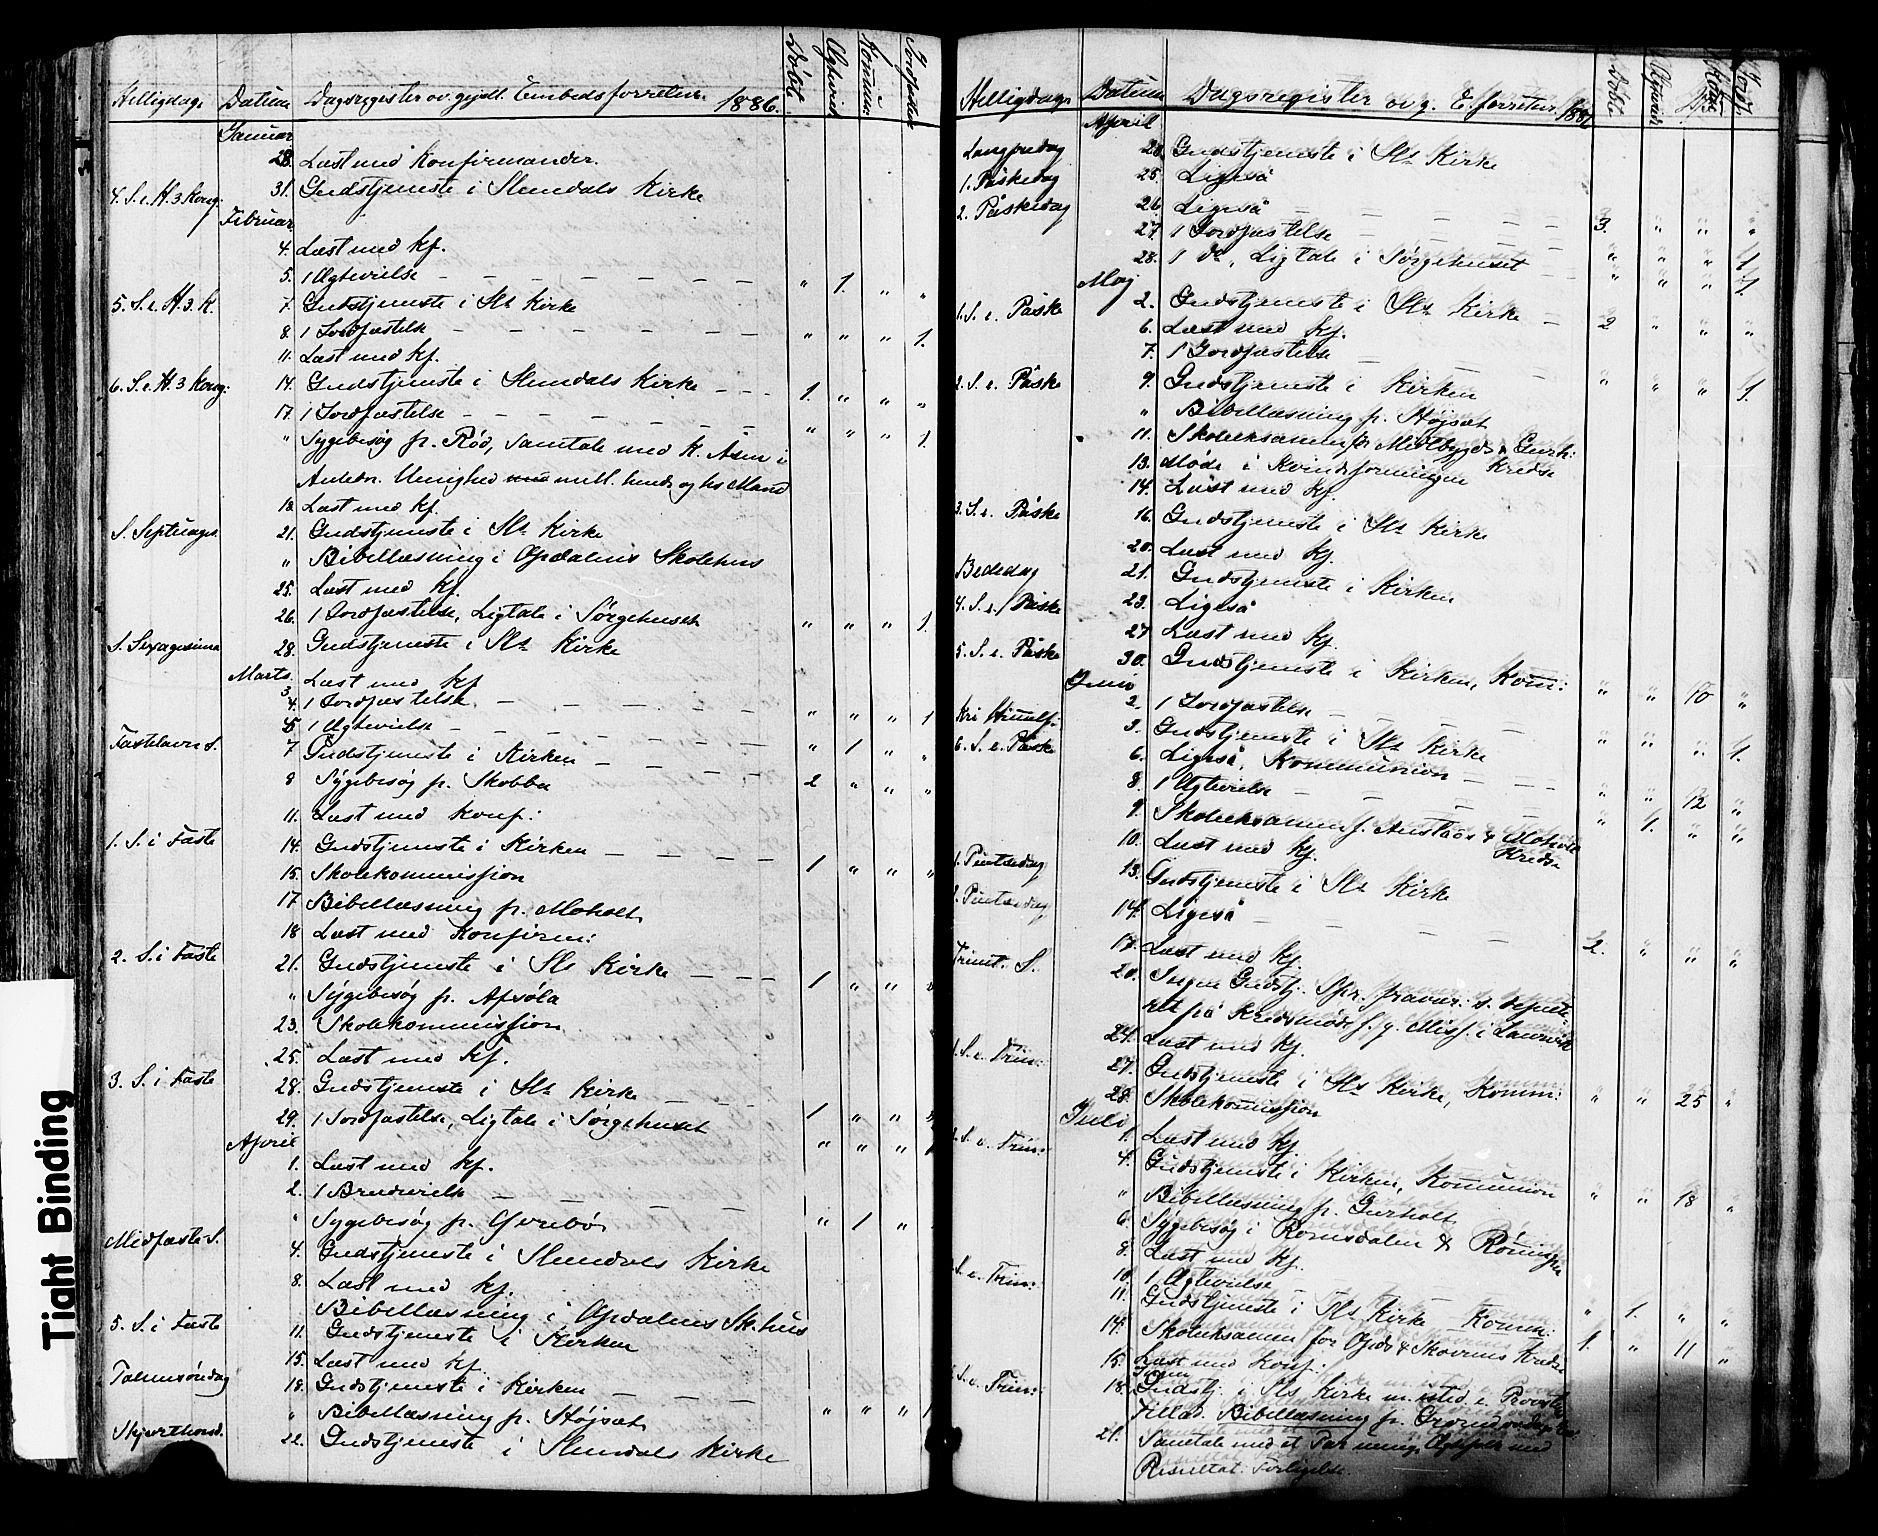 Helligdage Datum Dagsregister ov. gejstl. Embedsforretn. 1886. Døbt. Ægteviet Kommun: Jordfæstede
Januar
28. Læst med Konfirmander.
4. S. e. H. 3 Kong: 31. Gudstjeneste i Slemdals Kirke
Februar
4. Læst med Kf.
5. 1 Ægtevielse — — — — — — " 1. " "
5. S. e. H. 3 K. 7. Gudstjeneste i Sls Kirke
8. 1 Jordfæstelse — — — — — — " " " 1.
11. Læst med Kf.
6. S. e. H. 3 Kong: 14. Gudstjeneste i Slemdals Kirke — — — 1. " " "
17. 1 Jordfæstelse — — — — — — " " " 1.
" Sygebesøg på Rød, Samtale med K. Åsen i
Anledn. Uenighed mell. hende og hs Mand
18. Læst med Kf.
S. Septuages. 21. Gudstjeneste i Sls Kirke
" Bibellæsning i Opdalens Skolehus
25. Læst med Kf.
26. 1 Jordfæstelse, Ligtale i Sørgehuset " " " 1.
S. Sexagesima 28. Gudstjeneste i Sls Kirke
Marts
3. Læst med Kf
4. 1 Jordfæstelse — — — — — " " " 1
5 1 Ægtevielse — — — — — — " 1 " "
Fastelavns S. 7 Gudstjeneste i Kirken — — — — 2 " " "
8 Sygebesøg på Skobba
11. Læst med Konf:
1. S. i Faste 14. Gudstjeneste i Kirken — — — — 1 " " "
15. Skolekommission
17 Bibellæsning på Moholt
18 Læst med Konfirm:
2. S. i Faste 21. Gudstjeneste i Sls Kirke — — — 1 " " "
" Sygebesøg på
23. Skolekommission
25. Læst med Kf.
3. S. i Faste 28. Gudstjeneste i Sls Kirke — — — 1 " " "
29. 1 Jordfæstelse, Ligtale i Sørgehuset " " " 1
April
1. Læst med Kf.
2. 1 Brudevielse — — — " 1 "
" Sygebesøg på
Midfaste S. 4. Gudstjeneste i Slemdals Kirke
8. Læst med Kf.
Bibellæsning i Opdalens Sk.hus
5. S. i Faste 11. Gudstjeneste i Kirken
15. Læst med Kf
Palmesøndag 18. Gudstjeneste i Kirken — — — " " "
" Bibellæsning på Højsæt
Skjærthorsd. 22. Gudstjeneste i Slemdals Kirke
Helligdage Datum Dagsregister ov. g. E. forretn: 1886 Døbt. Ægteviede
April
Langfredag 23 Gudstjeneste i Sls Kirke
1. Påskedag 25. Ligeså
2. Påskedag 26 Ligeså — — — — — 3. " " "
27. 1 Jordfæstelse — — — — — " " " 1.
28. 1 do, Ligtale i Sørgehuset — " " " 1.
Maj
1. S. e. Påske 2. Gudstjeneste i Sls Kirke — 2 " " "
6. Læst med Kf.
7. 1 Jordfæstelse — — — " " " 1.
2. S. e. Påske 9. Gudstjeneste i Kirken
" Bibellæsning på Højsæt
11. Skoleeksamen for Midtbygds & Gurh:
Kredse
13. Møde i Kvindeforeningen
14. Læst med Kf.
3. S. e. Påske 16. Gudstjeneste i Sls Kirke
20. Læst med Kf.
Bededag 21. Gudstjeneste i Kirken
4. S. e. Påske 23. Ligeså
27 Læst med Kf.
5. S. e. Påske 30. Gudstjeneste i Kirken, Kom: " " 10 "
Juni
2. 1 Jordfæstelse — — — — " " " 1.
Kri Himmelf: 3. Gudstjeneste i Sls Kirke
6. S. e. Påske 6. Ligeså, Kommunion — — " " 12 "
8. 1 Ægtevielse — — — — — " 1. " "
9. Skoleeksamen f. & Moholt
Kredse
10. Læst med Kf.
1. Pintsedag 13. Gudstjeneste i Sls Kirke
2. Pintsedag 14. Ligeså — — — — — 2. " " "
17. Læst med Kf.
Trinit. S. 20. Ingen Gudstj. Spr. fravær:
på Kredsmøde f. Miss. i Laurvik
24. Læst med Kf.
1. S. e. Trin: 27. Gudstjeneste i Sls Kirke, Komm: " " 25 "
28. Skolekommission
Juli
S. e. Trin: 1. Læst med Kf.
4. Gudstjeneste i Kirken, Kommunion " " 18 "
" Bibellæsning på Gurholt
6. Sygebesøg i Romsdalen & Rønningen
8. Læst med Kf.
10. 1 Ægtevielse — — " 1. " "
S. e. Trin: 11. Gudstjeneste i Sls Kirke Komm: 1. " 11 "
14. Skoleeksamen for Opds & Skovens Kredse
15. Læst med Konf.
Ingen
S. e. Trin: 18. Gudstj. i Sls Kirke m. isted. e. Provstens
Tillad. Bibellæsning på
21. Samtale med et Par uenige Ægtefolk med
Resultat: Forligelse.
Tight Binding